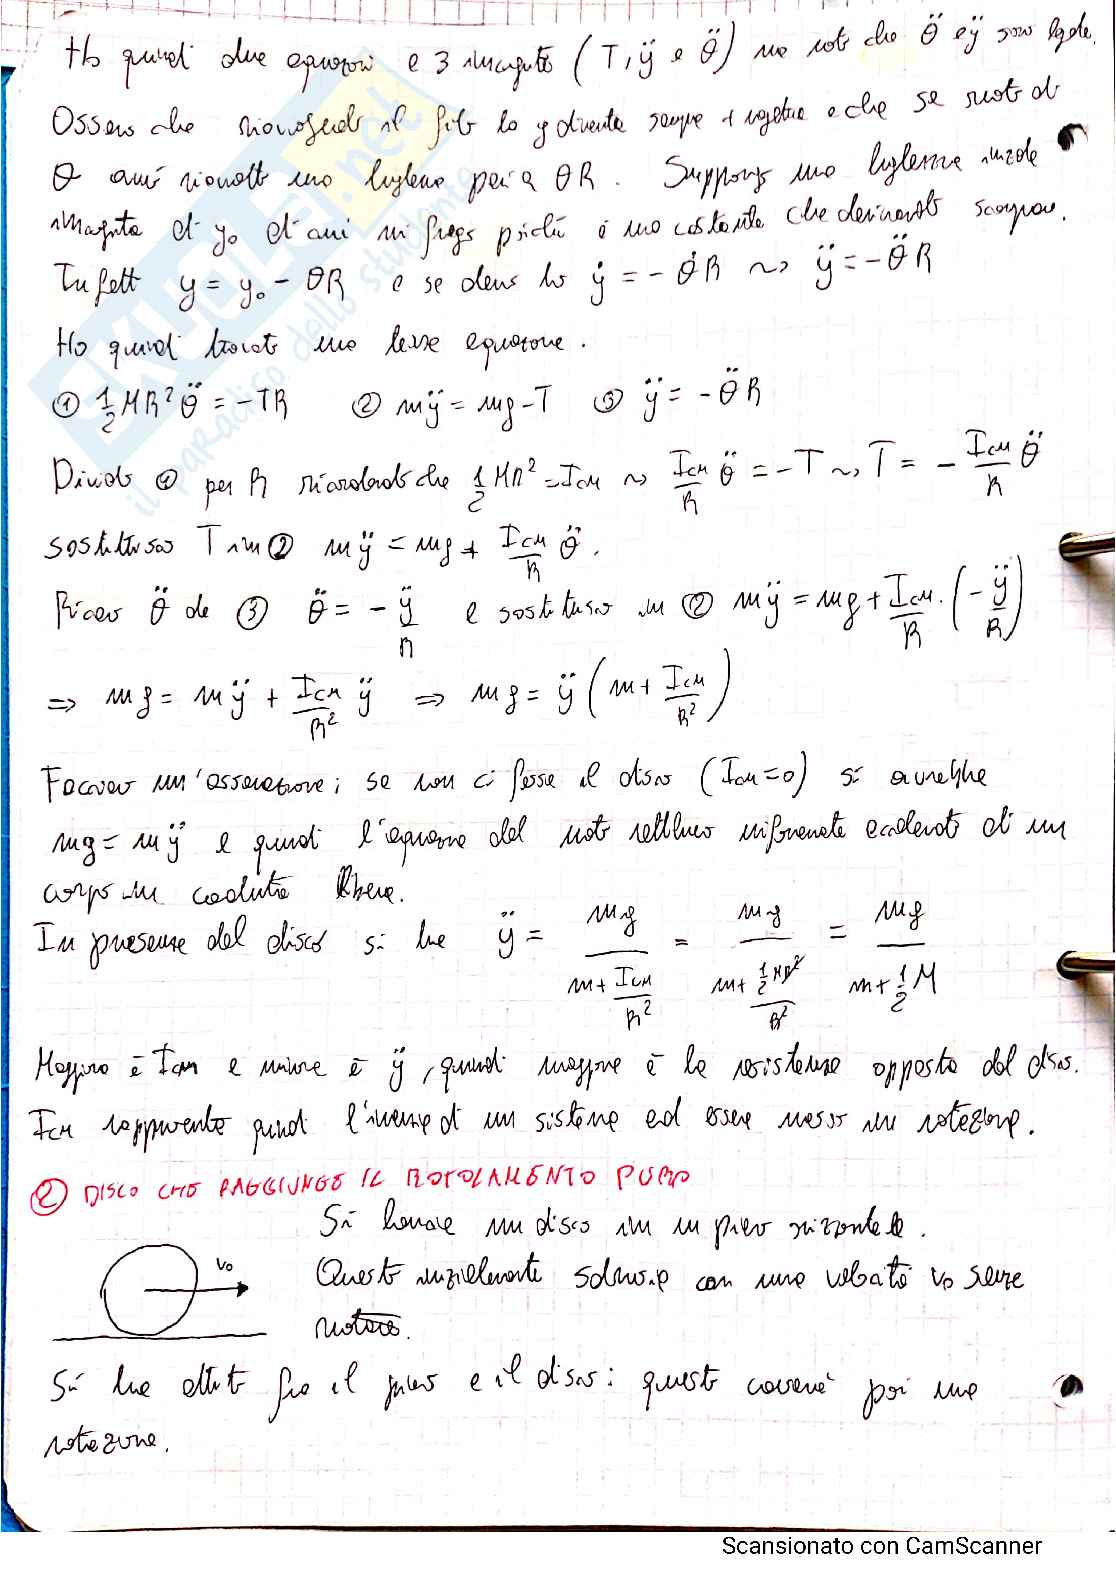 Ho quindi due equazioni e 3 incognite ( T, ÿ e θ̈ ) ma noto che θ̈ e ÿ sono legate.
Osservo che riavvolgendo il filo la y diventa sempre + negativa e che se ruoto di
θ avrò riavvolto una lunghezza pari a θR. Suppongo una lunghezza iniziale
incognita di y₀ di cui mi frego poiché è una costante che derivando scompare.
Infatti y = y₀ - θR e se derivo ho ẏ = - θ̇R ~> ÿ = - θ̈R
Ho quindi trovato una terza equazione.
① ½MR²θ̈ = -TR ② mÿ = mg - T ③ ÿ = - θ̈R
Divido ① per R ricordando che ½MR² = Icm ~> Icm/R θ̈ = -T ~> T = - Icm/R θ̈
sostituisco T in ② mÿ = mg + Icm/R θ̈.
Ricavo θ̈ da ③ θ̈ = - ÿ/R e sostituisco in ② mÿ = mg + Icm/R · (- ÿ/R)
=> mg = mÿ + Icm/R² ÿ => mg = ÿ (m + Icm/R²)
Facciamo un'osservazione; se non ci fosse il disco (Icm=0) si avrebbe
mg = mÿ e quindi l'equazione del moto rettilineo uniformemente accelerato di un
corpo in caduta libera.
In presenza del disco si ha ÿ = mg/(m + Icm/R²) = mg/(m + ½MR²/R²) = mg/(m + ½M)
Maggiore è Icm e minore è ÿ, quindi maggiore è la resistenza opposta dal disco.
Icm rappresenta quindi l'inerzia di un sistema ad essere messo in rotazione.
② DISCO CHE RAGGIUNGE IL ROTOLAMENTO PURO
Si lancia un disco in un piano orizzontale.
v₀
Questo inizialmente solamente con una velocità v₀ senza
ruotare.
Si ha attrito fra il piano e il disco: questo causerà poi una
rotazione.
SKUOLA.net
il paradiso dello studente
Scansionato con CamScanner